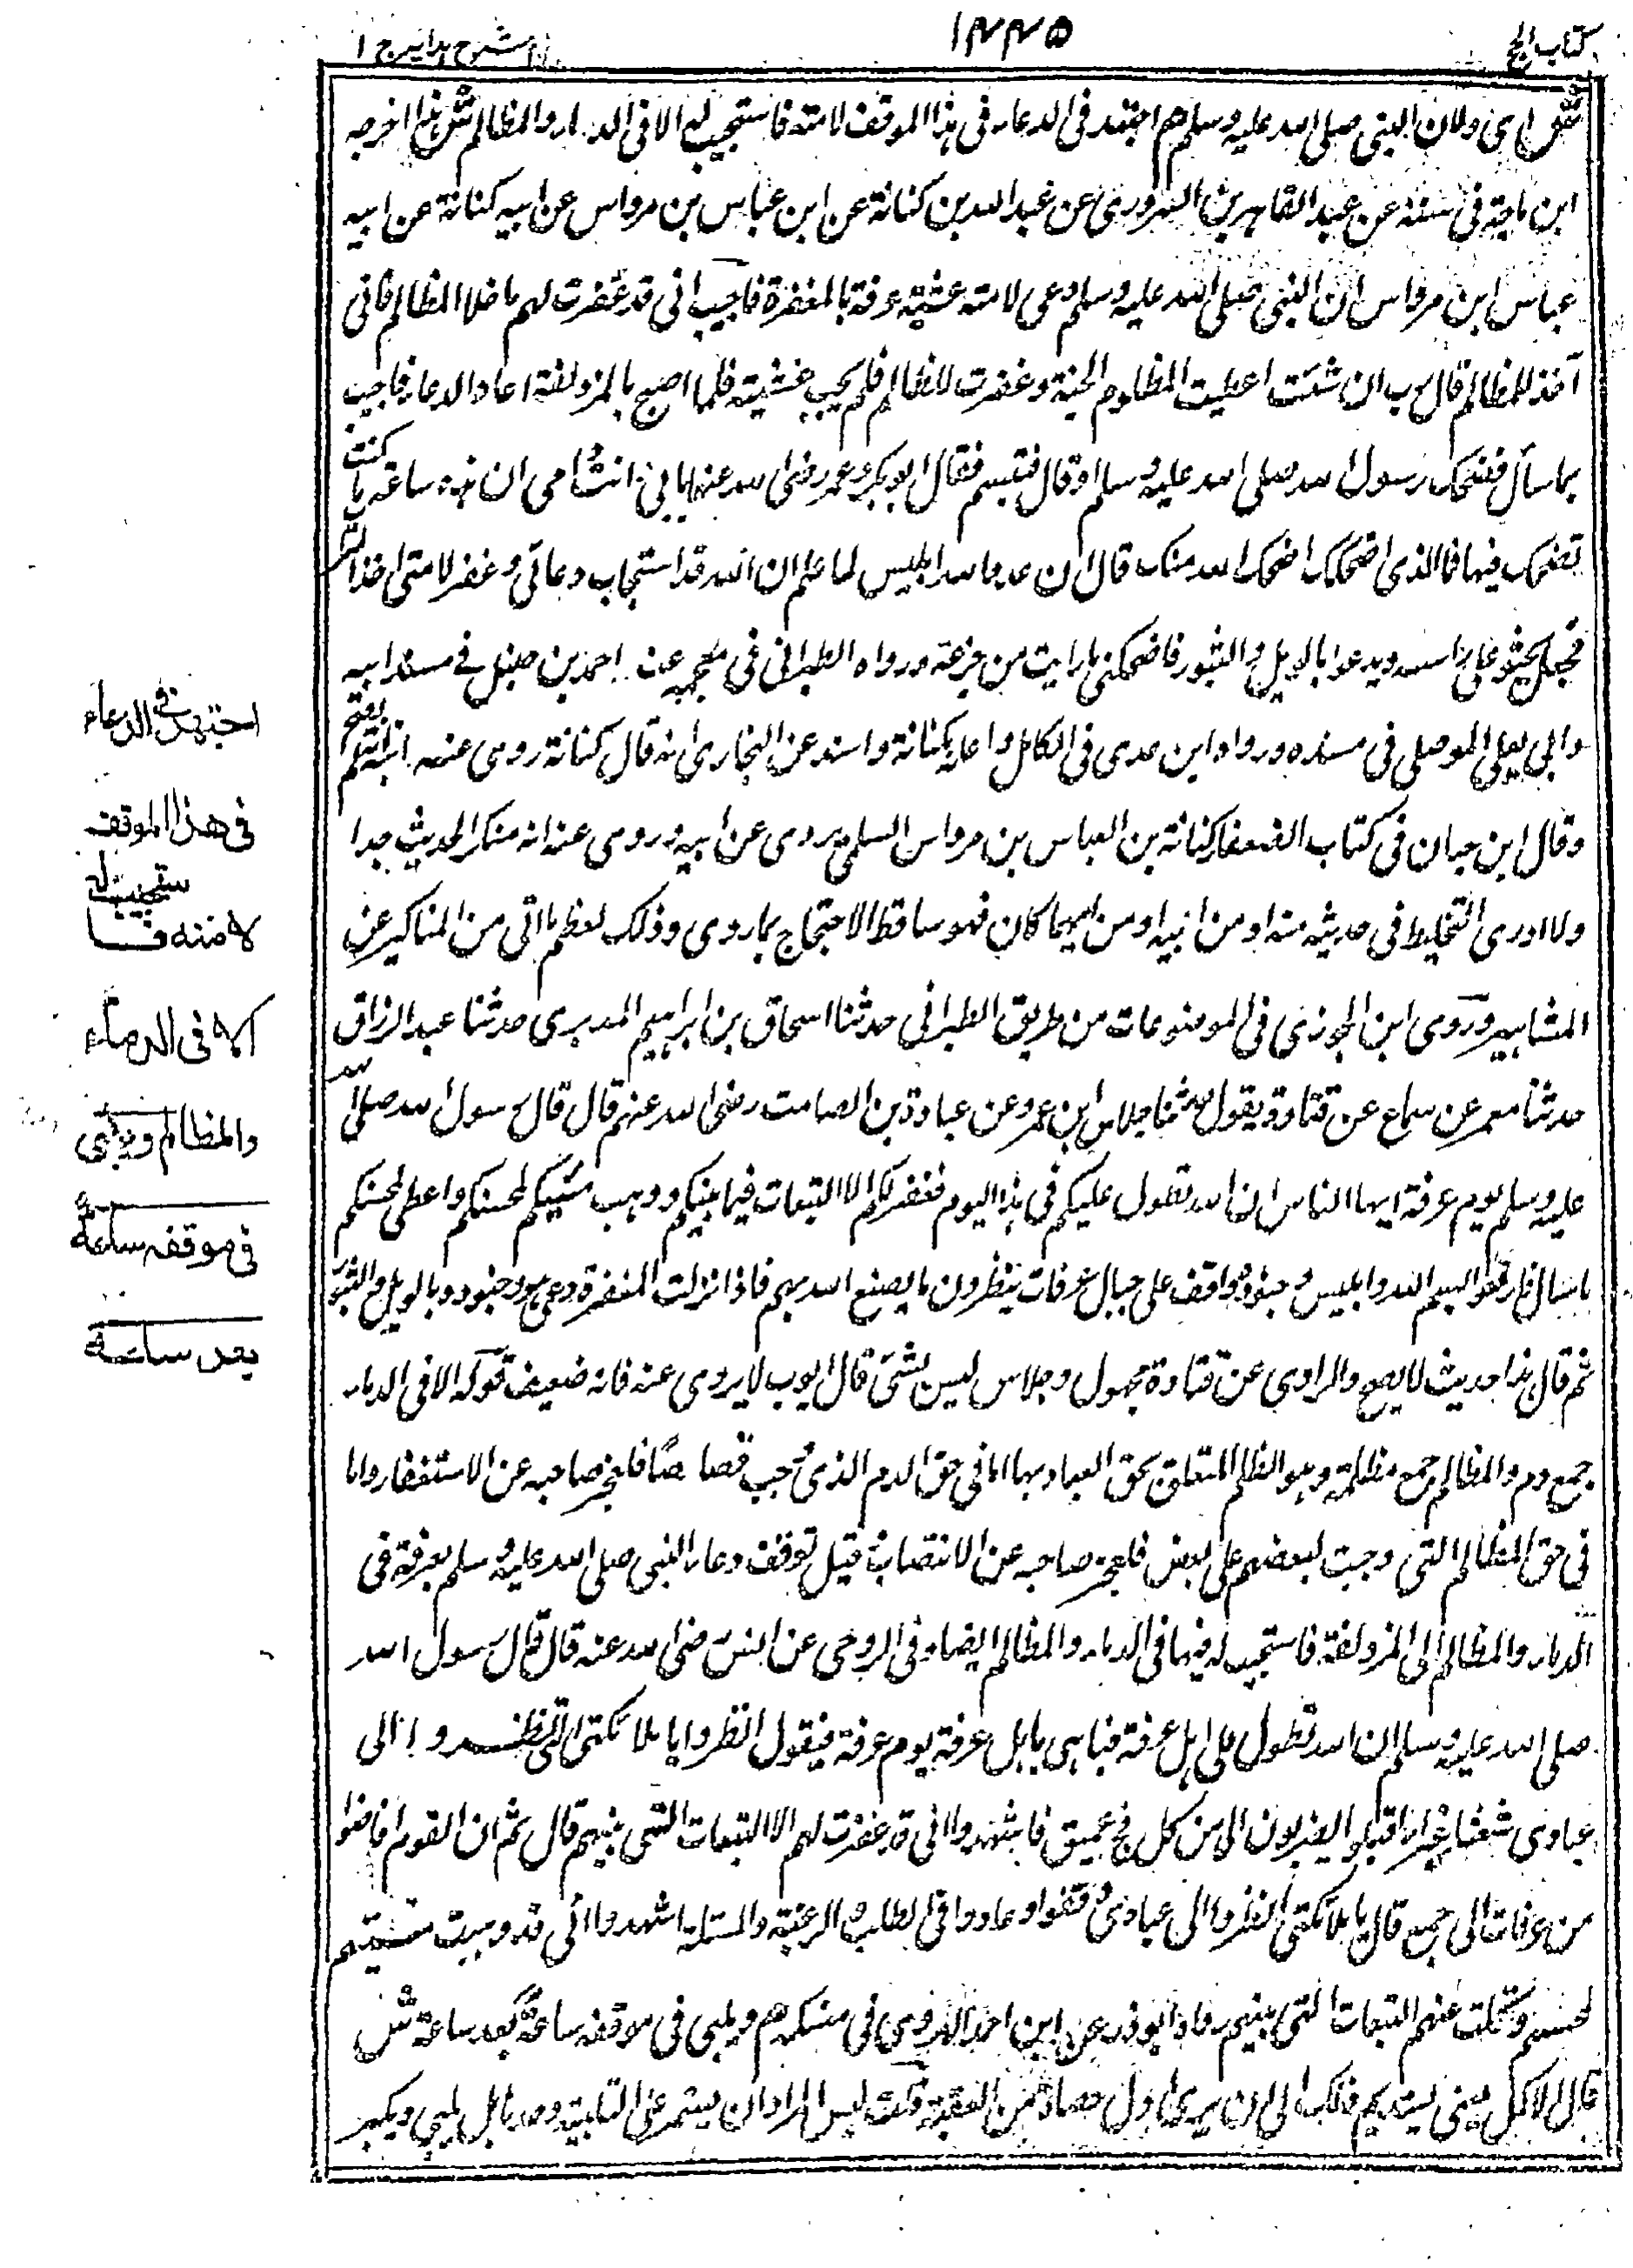 كتاب الحج
١٤٤٥
شرح هدايه ج ١
ش اى ولان النبى صلى الله عليه وسلم هم اجتهد فى الدعاء فى هذا الموقف لامته فاستجيب له الا فى الدماء والمظالم ش هذا اخرجه
ابن ماجة فى سننه عن عبد القاهر بن السرورى عن عبد الله بن كنانة عن ابن عباس بن مرداس عن ابيه كنانة عن ابيه
عباس ابن مرداس ان النبى صلى الله عليه وسلم دعى لامته عشية عرفة بالمغفرة فاجيب انى قد غفرت لهم ما خلا المظالم فانى
آخذ للمظالم قال رب ان شئت اعطيت المظلوم الجنة وغفرت للظالم فلم يجب عشيته فلما اصبح بالمزدلفة اعاد الدعاء فاجيب
بما سأل فضحك رسول الله صلى الله عليه وسلم او قال فتبسم فقال ابو بكر وعمر رضى الله عنهما بابى انت وامى ان هذه ساعة ما كنت
تضحك فيها فما الذى اضحكك اضحك الله سنك قال ان عدو الله ابليس لما علم ان الله قد استجاب دعائى وغفر لامتى اخذ التراب
فجعل يحثو على راسه ويدعو بالويل والثبور فاضحكنى ما رايت من جزعه ورواه الطبرانى فى معجمه عن احمد بن حنبل فى مسند ابيه
وابى يعلى الموصلى فى مسنده ورواه ابن عدى فى الكامل واعله بكنانة واسند عن البخارى انه قال كنانة روى عنه ابنه لم يصح
وقال ابن حبان فى كتاب الضعفا كنانة بن العباس بن مرداس السلمى يروى عن ابيه روى عنه ابنه منكر الحديث جدا
ولا ادرى التخليط فى حديثه منه او من ابنه او من ايهما كان فهو ساقط الاحتجاج بما روى وذلك لعظم ما اتى من المناكير عن
المشاهير وروى ابن الجوزى فى الموضوعات من طريق الطبرانى حدثنا اسحاق بن ابراهيم الدبرى حدثنا عبد الرزاق
حدثنا معمر عن سماع عن قتادة يقول حدثنا جلاس ابن عمرو عن عبادة بن الصامت رضى الله عنهم قال قال رسول الله صلى الله
عليه وسلم يوم عرفة ايها الناس ان الله تطول عليكم فى هذا اليوم فغفر لكم الا التبعات فيما بينكم ووهب مسيئكم لمحسنكم واعطى لمحسنكم
ما سال فارفعوا بسم الله وابليس وجنوده واقف على جبال عرفات ينظرون ما يصنع الله بهم فاذا نزلت المغفرة دعى هو وجنوده بالويل والثبور
ثم قال هذا حديث لا يصح والراوى عن قتادة مجهول وجلاس ليس بشئ قال ايوب لا يروى عنه فانه ضعيف قوله الا فى الدماء
جمع دم والمظالم جمع مظلمة وهو الظلم المتعلق بحق العباد بها اما فى حق الدم الذى يجب قصاصًا فلعجز صاحبه عن الاستغفار واما
فى حق المظالم التى وجبت لبعضهم على بعض فلعجز صاحبه عن الانتصاف قيل توقف دعاء النبى صلى الله عليه وسلم بعرفة فى
الدماء والمظالم الى المزدلفة فاستجيب له فيها فى الدماء والمظالم ايضا وفى الروحى عن انس رضى الله عنه قال قال رسول الله
صلى الله عليه وسلم ان الله تطول على اهل عرفة فباهى باهل عرفة يوم عرفة فيقول انظروا يا ملائكتى انظروا الى
عبادى شعثا غبرا اقبلوا يضربون الى من كل فج عميق فاشهدوا انى قد غفرت لهم الا التبعات التى بينهم قال ثم ان القوم افاضوا
من عرفات الى جمع قال يا ملائكتى انظروا الى عبادى وقفوا وعادوا فى الطلب والرغبة والمسئلة اشهدوا انى قد وهبت مسيئهم
لمحسنهم وتحملت عنهم التبعات التى بينهم رواه ابو ذر عبد ابن احمد الهروى فى منسكه هم ويلبى فى موقفه ساعة بعد ساعة ش
قال الاكمل يعنى يستديم ذلك الى ان يرمى اول حصاة من العقبة قلت ليس المراد ان يستمر على التلبية وحدها بل يلبى ويكبر
اجتهد فى الدعاء
فى هذا الموقف
لامته فاستجيب له
الا فى الدماء
والمظالم ويلبى
فى موقفه ساعة
بعد ساعة